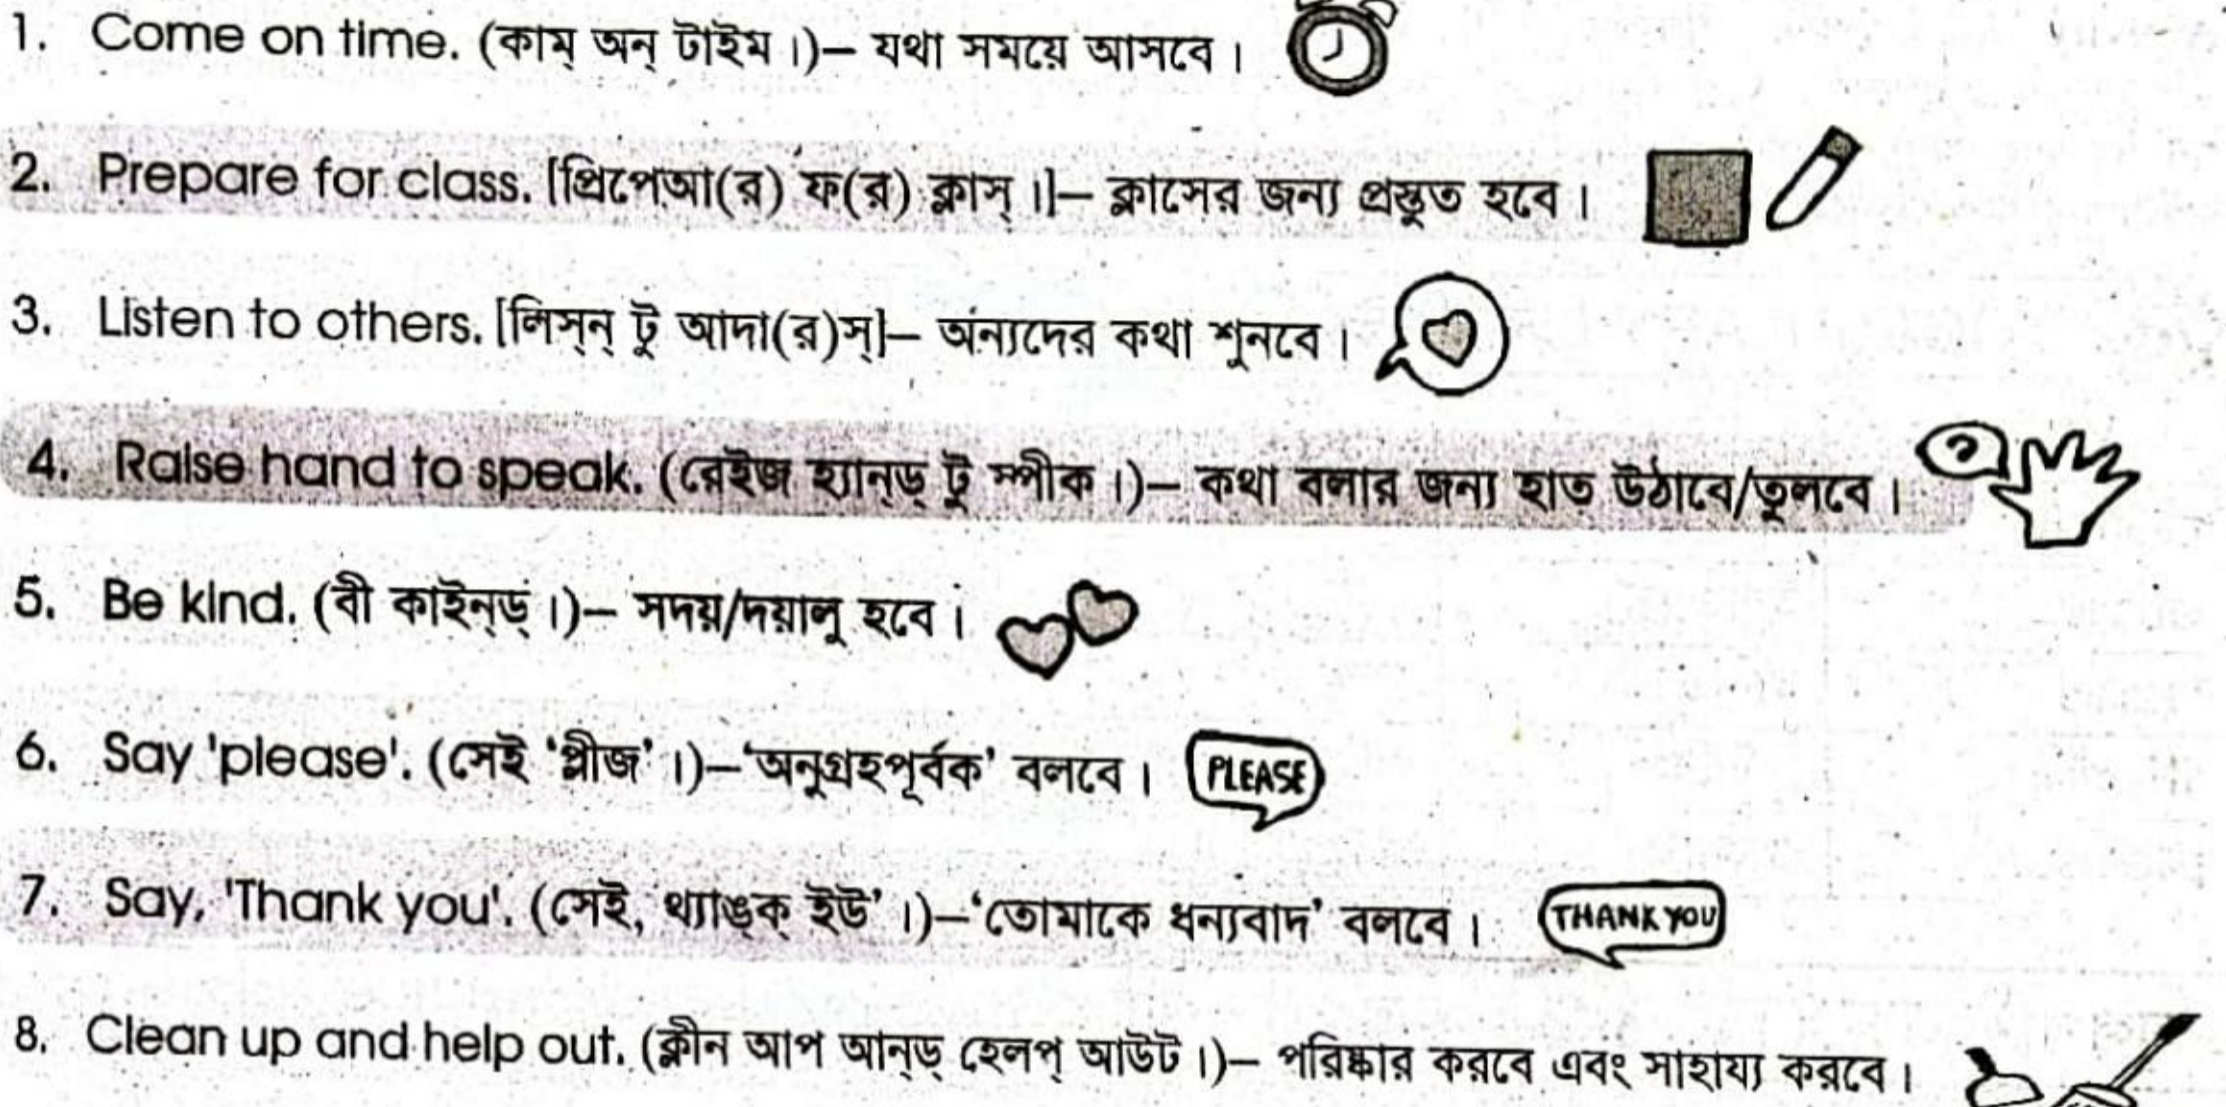 1. Come on time. (কাম্ অন্ টাইম ।)– যথা সময়ে আসবে ।
2. Prepare for class. [প্রিপেআ(র) ফ(র) ক্লাস্ ।]– ক্লাসের জন্য প্রস্তুত হবে ।
3. Listen to others. [লিস্ন্ টু আদা(র)স্]– অন্যদের কথা শুনবে ।
4. Raise hand to speak. (রেইজ হ্যান্ড্ টু স্পীক ।)– কথা বলার জন্য হাত উঠাবে/তুলবে । ?
5. Be kind. (বী কাইন্ড্ ।)– সদয়/দয়ালু হবে ।
6. Say 'please'. (সেই ‘প্লীজ’ ।)–‘অনুগ্রহপূর্বক’ বলবে । PLEASE
7. Say, 'Thank you'. (সেই, ‘থ্যাঙ্ক্ ইউ’ ।)–‘তোমাকে ধন্যবাদ’ বলবে । THANK YOU
8. Clean up and help out. (ক্লীন আপ আন্ড্ হেলপ্ আউট ।)– পরিষ্কার করবে এবং সাহায্য করবে ।